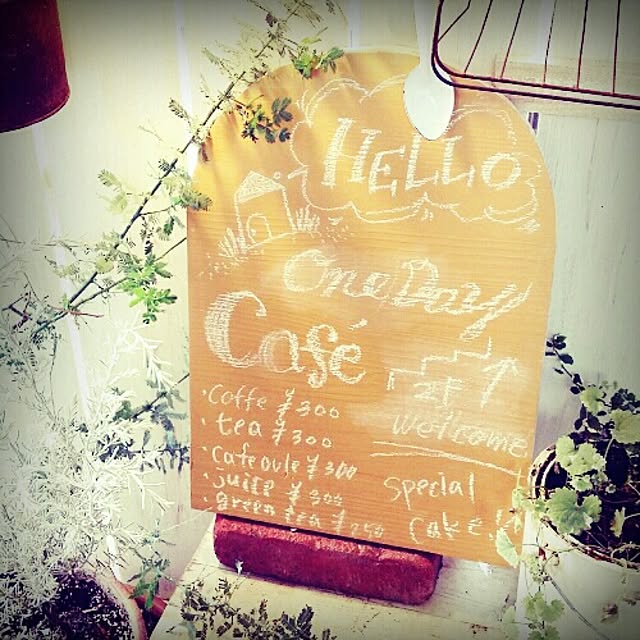 HELLO
One Day
Café
2F ↑
welcome
・Coffe ¥300
・tea ¥300
・Cafe oule ¥300
・juice ¥300
・green tea ¥250
special
cake